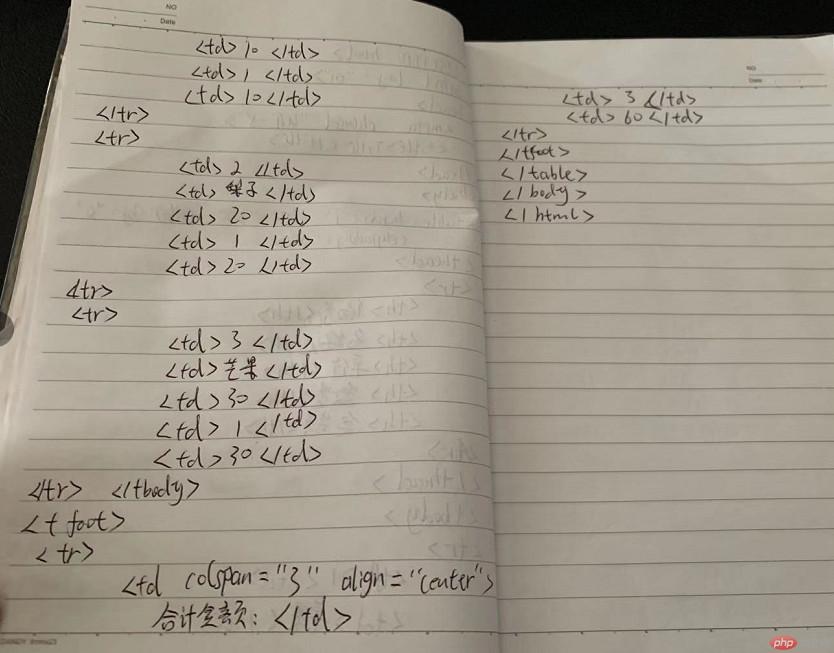 NO
Date
<td> 10 </td>
<td> 1 </td>
<td> 10 </td>
</tr>
<tr>
<td> 2 </td>
<td> 梨子 </td>
<td> 20 </td>
<td> 1 </td>
<td> 20 </td>
</tr>
<tr>
<td> 3 </td>
<td> 芒果 </td>
<td> 30 </td>
<td> 1 </td>
<td> 30 </td>
</tr> </tbody>
<tfoot>
<tr>
<td colspan="3" align="center">
合计金额: </td>
NO
Date
<td> 3 </td>
<td> 60 </td>
</tr>
</tfoot>
</table>
</body>
</html>
php